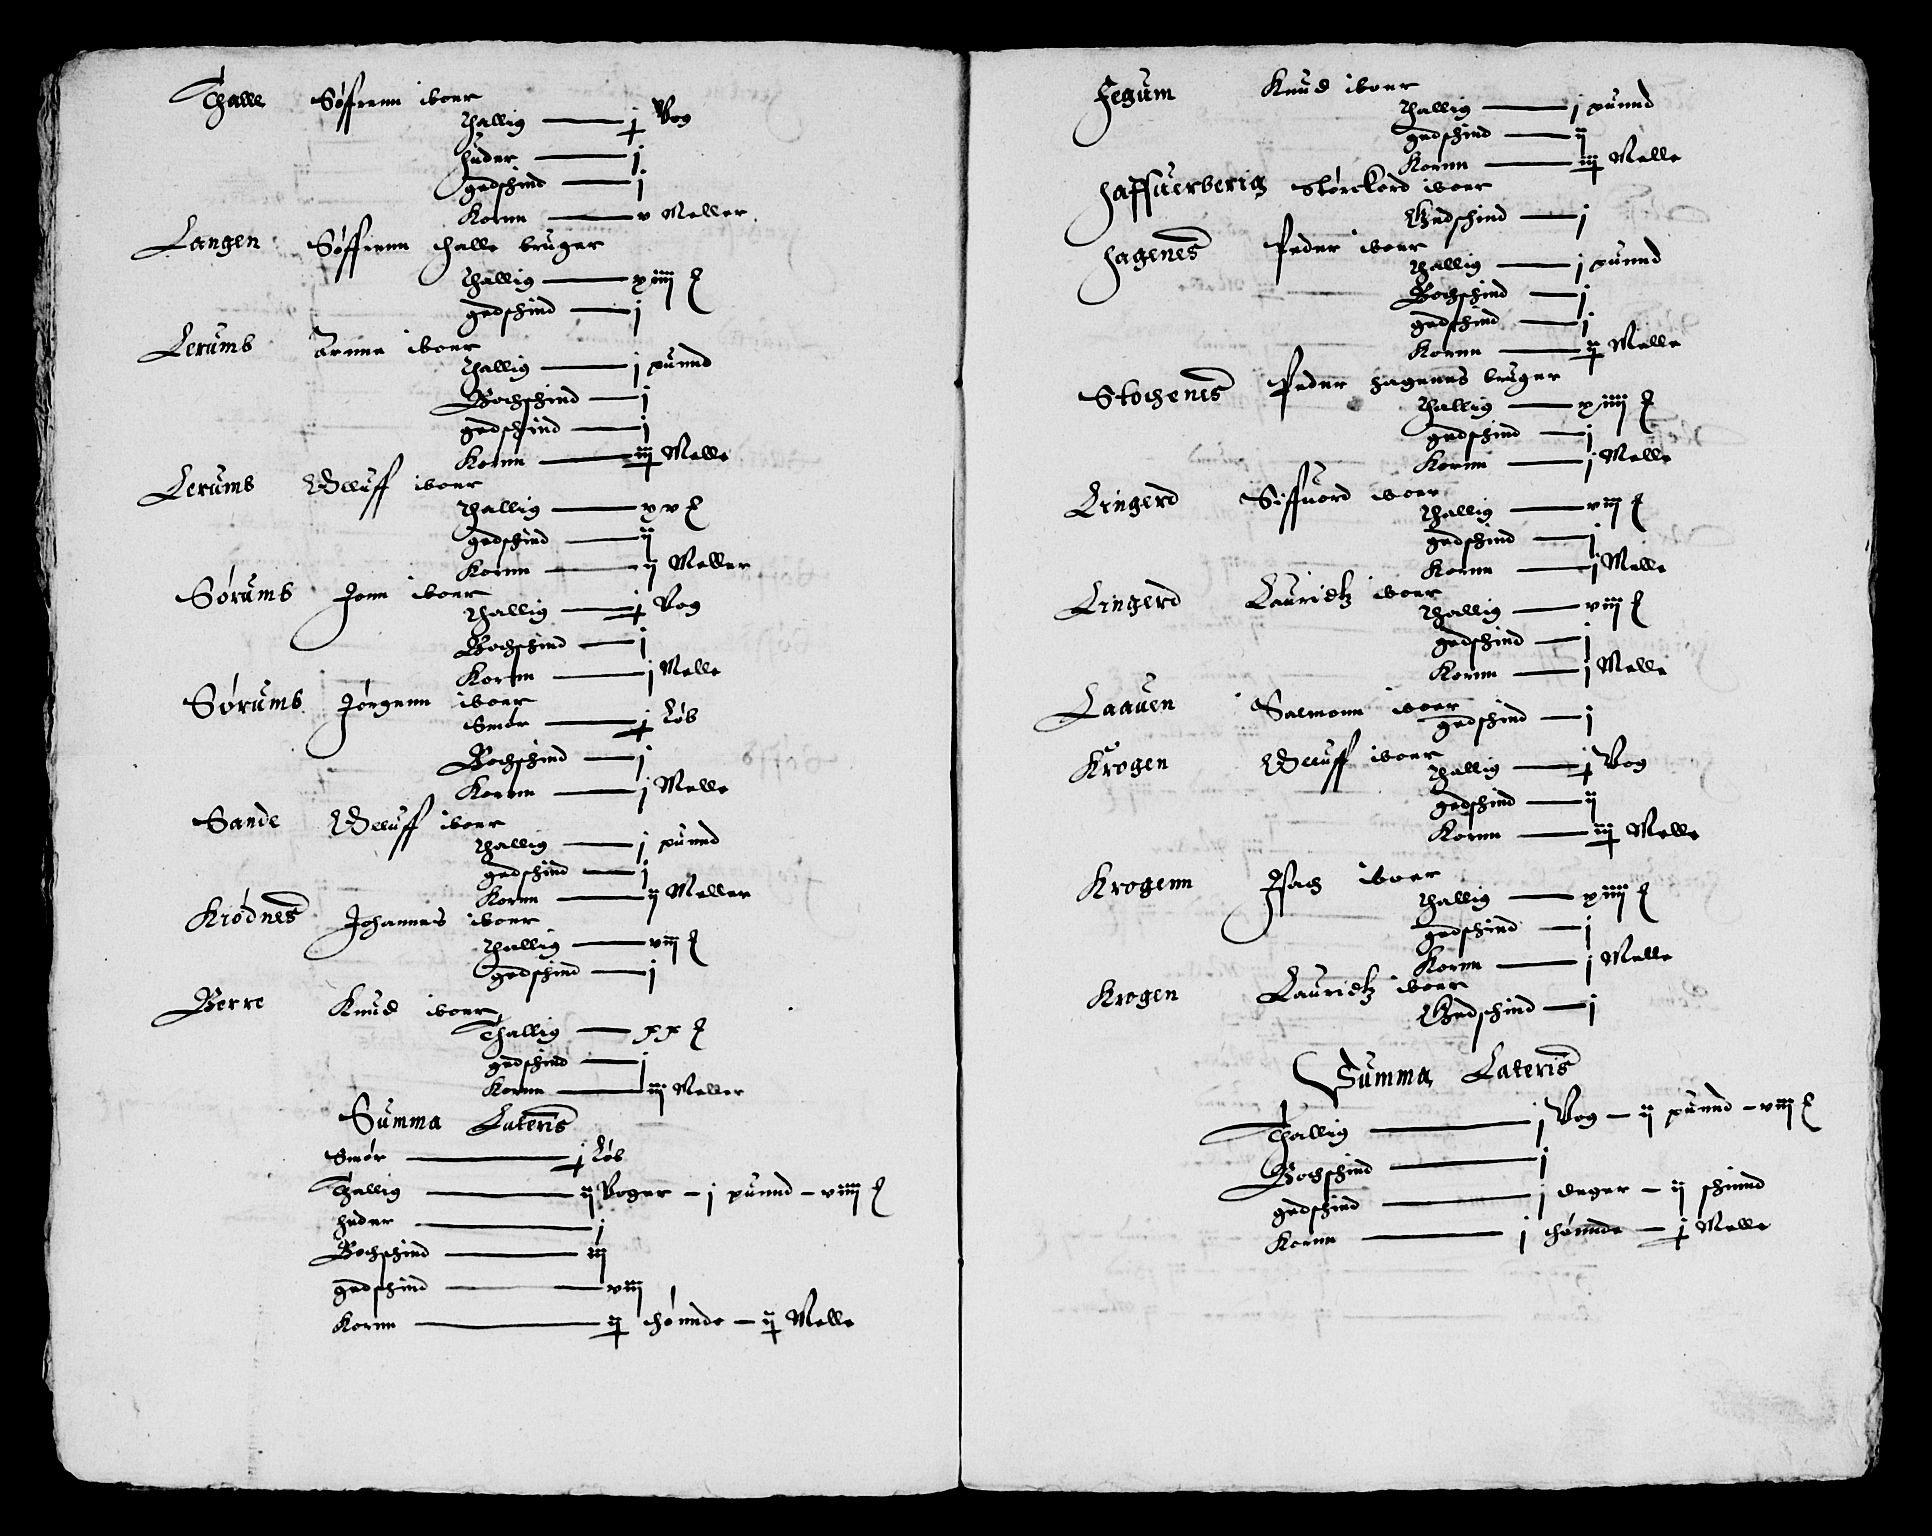 Thalle Søffrenn iboer
Thallig — j̶ Vog
huder — j
gedschind — j
Kornn — v Meller
Langen Søffrenn thalle bruger
Thallig — xiiij ℔
gedschind — j
Lerums Arnne iboer
Thallig — j pünnd
Bochschind — j
gedschind — j
Kornn — iiij̶ Melle
Lerums Olluff iboer
Thallig — xv ℔
gedschind — ij
Kornn — ij Meller
Sørums Jonn iboer
Thallig — j̶ Vog
Bochschind — j
Kornn — j Melle
Sørums Jørgenn iboer
Smør — j̶ Løb
Bochschind — j
Kornn — j Melle
Sande Olluff iboer
Thallig — j pünnd
gedschind — j
Kornn — ij Meller
Krødnes Johannes iboer
Thallig — viij ℔
gedschind — j
Berre Knud iboer
Thallig — xx ℔
gedschind — j
Kornn — iij Meller
Summa Lateris
Smør — j̶ Løb
Thallig — ij Voger — j pünnd — viiij ℔
huder — j
Bochschind — iiij
gedschind — viij
Kornn — ij̶ thønnde — ij̶ Melle
Fegum Knud iboer
Thallig — j pünnd
gedschind — ij
Kornn — iiij̶ Melle
haffuerberig Størckord iboer
Gedschind — j
hagenes Peder iboer
Thallig — j pünnd
Bochschind — j
gedschind — j
Kornn — ij̶ Melle
Stochenes Peder hagenes bruger
Thallig — xiiij ℔
gedschind — j
Kornn — j Melle
Lingerd Siffuord iboer
Thallig — viij ℔
gedschind — j
Kornn — j Melle
Lingerd Lauridtz iboer
Thallig — viij ℔
gedschind — j
Kornn — j Melle
Laauen Salmonn iboer
gedschind — j
Krogen Olluff iboer
Thallig — j̶ Vog
gedschind — ij
Kornn — iiij̶ Melle
Krogenn Isach iboer
Thallig — xiiij ℔
gedschind — j
Kornn — j Melle
Krogen Lauridtz iboer
Gedschind — j
Summa Lateris
Thallig — j Vog — ij pünnd — viij ℔
Bochschind — j
gedschind — j deger — ij schinnd
Kornn — j thønnde — j̶ Melle